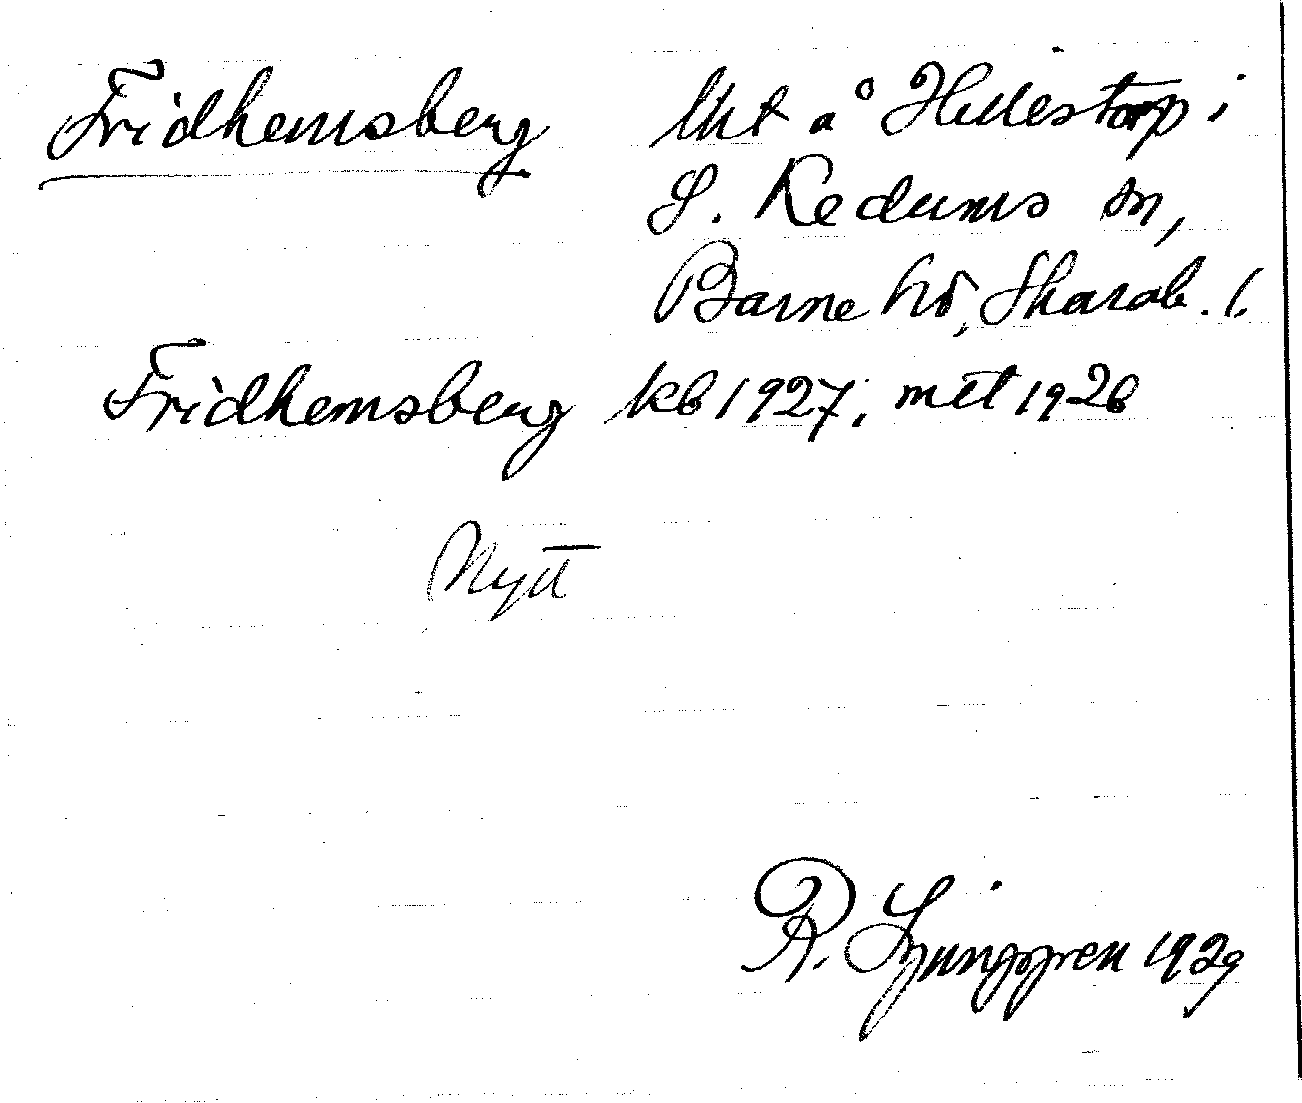 Fridhemsberg Lht å Hellestorp i
S. Kedums sn,
Barne hd, Skarab. l.
Fridhemsberg kb 1927, mtl 1926
Nytt
R. Ljunggren 1929